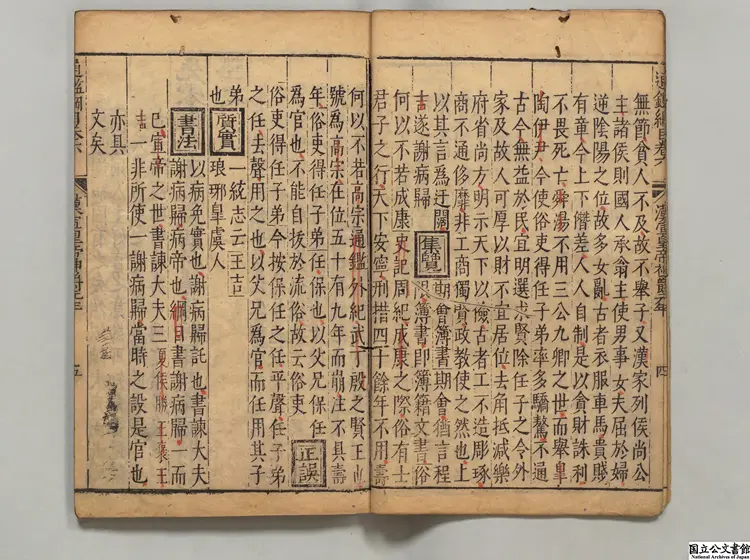 通鑑綱目卷六 漢宣皇帝神爵元年 四
無節貧人不及故不舉子又漢家列侯尚公
主諸侯則國人承翁主使男事女夫屈於婦
逆陰陽之位故多女亂古者衣服車馬貴賤
有章今上下僭差人人自制是以貪財誅利
不畏死亡舜湯不用三公九卿之世而舉臯
陶伊尹今使俗吏得任子弟率多驕驁不通
古今無益於民宜明選求賢除任子之令外
家及故人可厚以財不宜居位去角抵減樂
府省尚方明示天下以儉古者工不造彫琢
商不通侈靡非工商獨賢政教使之然也上
以其言爲迂闊
吉遂謝病歸
集覽
期會簿書期會猶言程
限簿書即簿籍文書俗
何以不若成康史記周紀成康之際俗有士
君子之行天下安寧刑措四十餘年不用壽
何以不若高宗通鑑外紀武丁殷之賢王也
號爲高宗在位五十有九年而崩注不具壽
年俗吏得任子弟任保也以父兄保任
爲官也不能自拔於流俗故云俗吏
正誤
俗吏得任子弟今按保任之任平聲任子弟
之任去聲用之也以父兄爲官而任用其子
弟
也
質實
一統志云王吉
琅琊皐虞人
書法
以病免實也謝病歸託也書諫大夫
謝病歸病帝也綱目書謝病歸一而
已宣帝之世書諫大夫三夏侯勝王襃王
吉一非所使一謝病歸當時之設是官也
亦具
文矣
通鑑綱目卷六 漢宣皇帝神爵元年 五
国立公文書館
National Archives of Japan